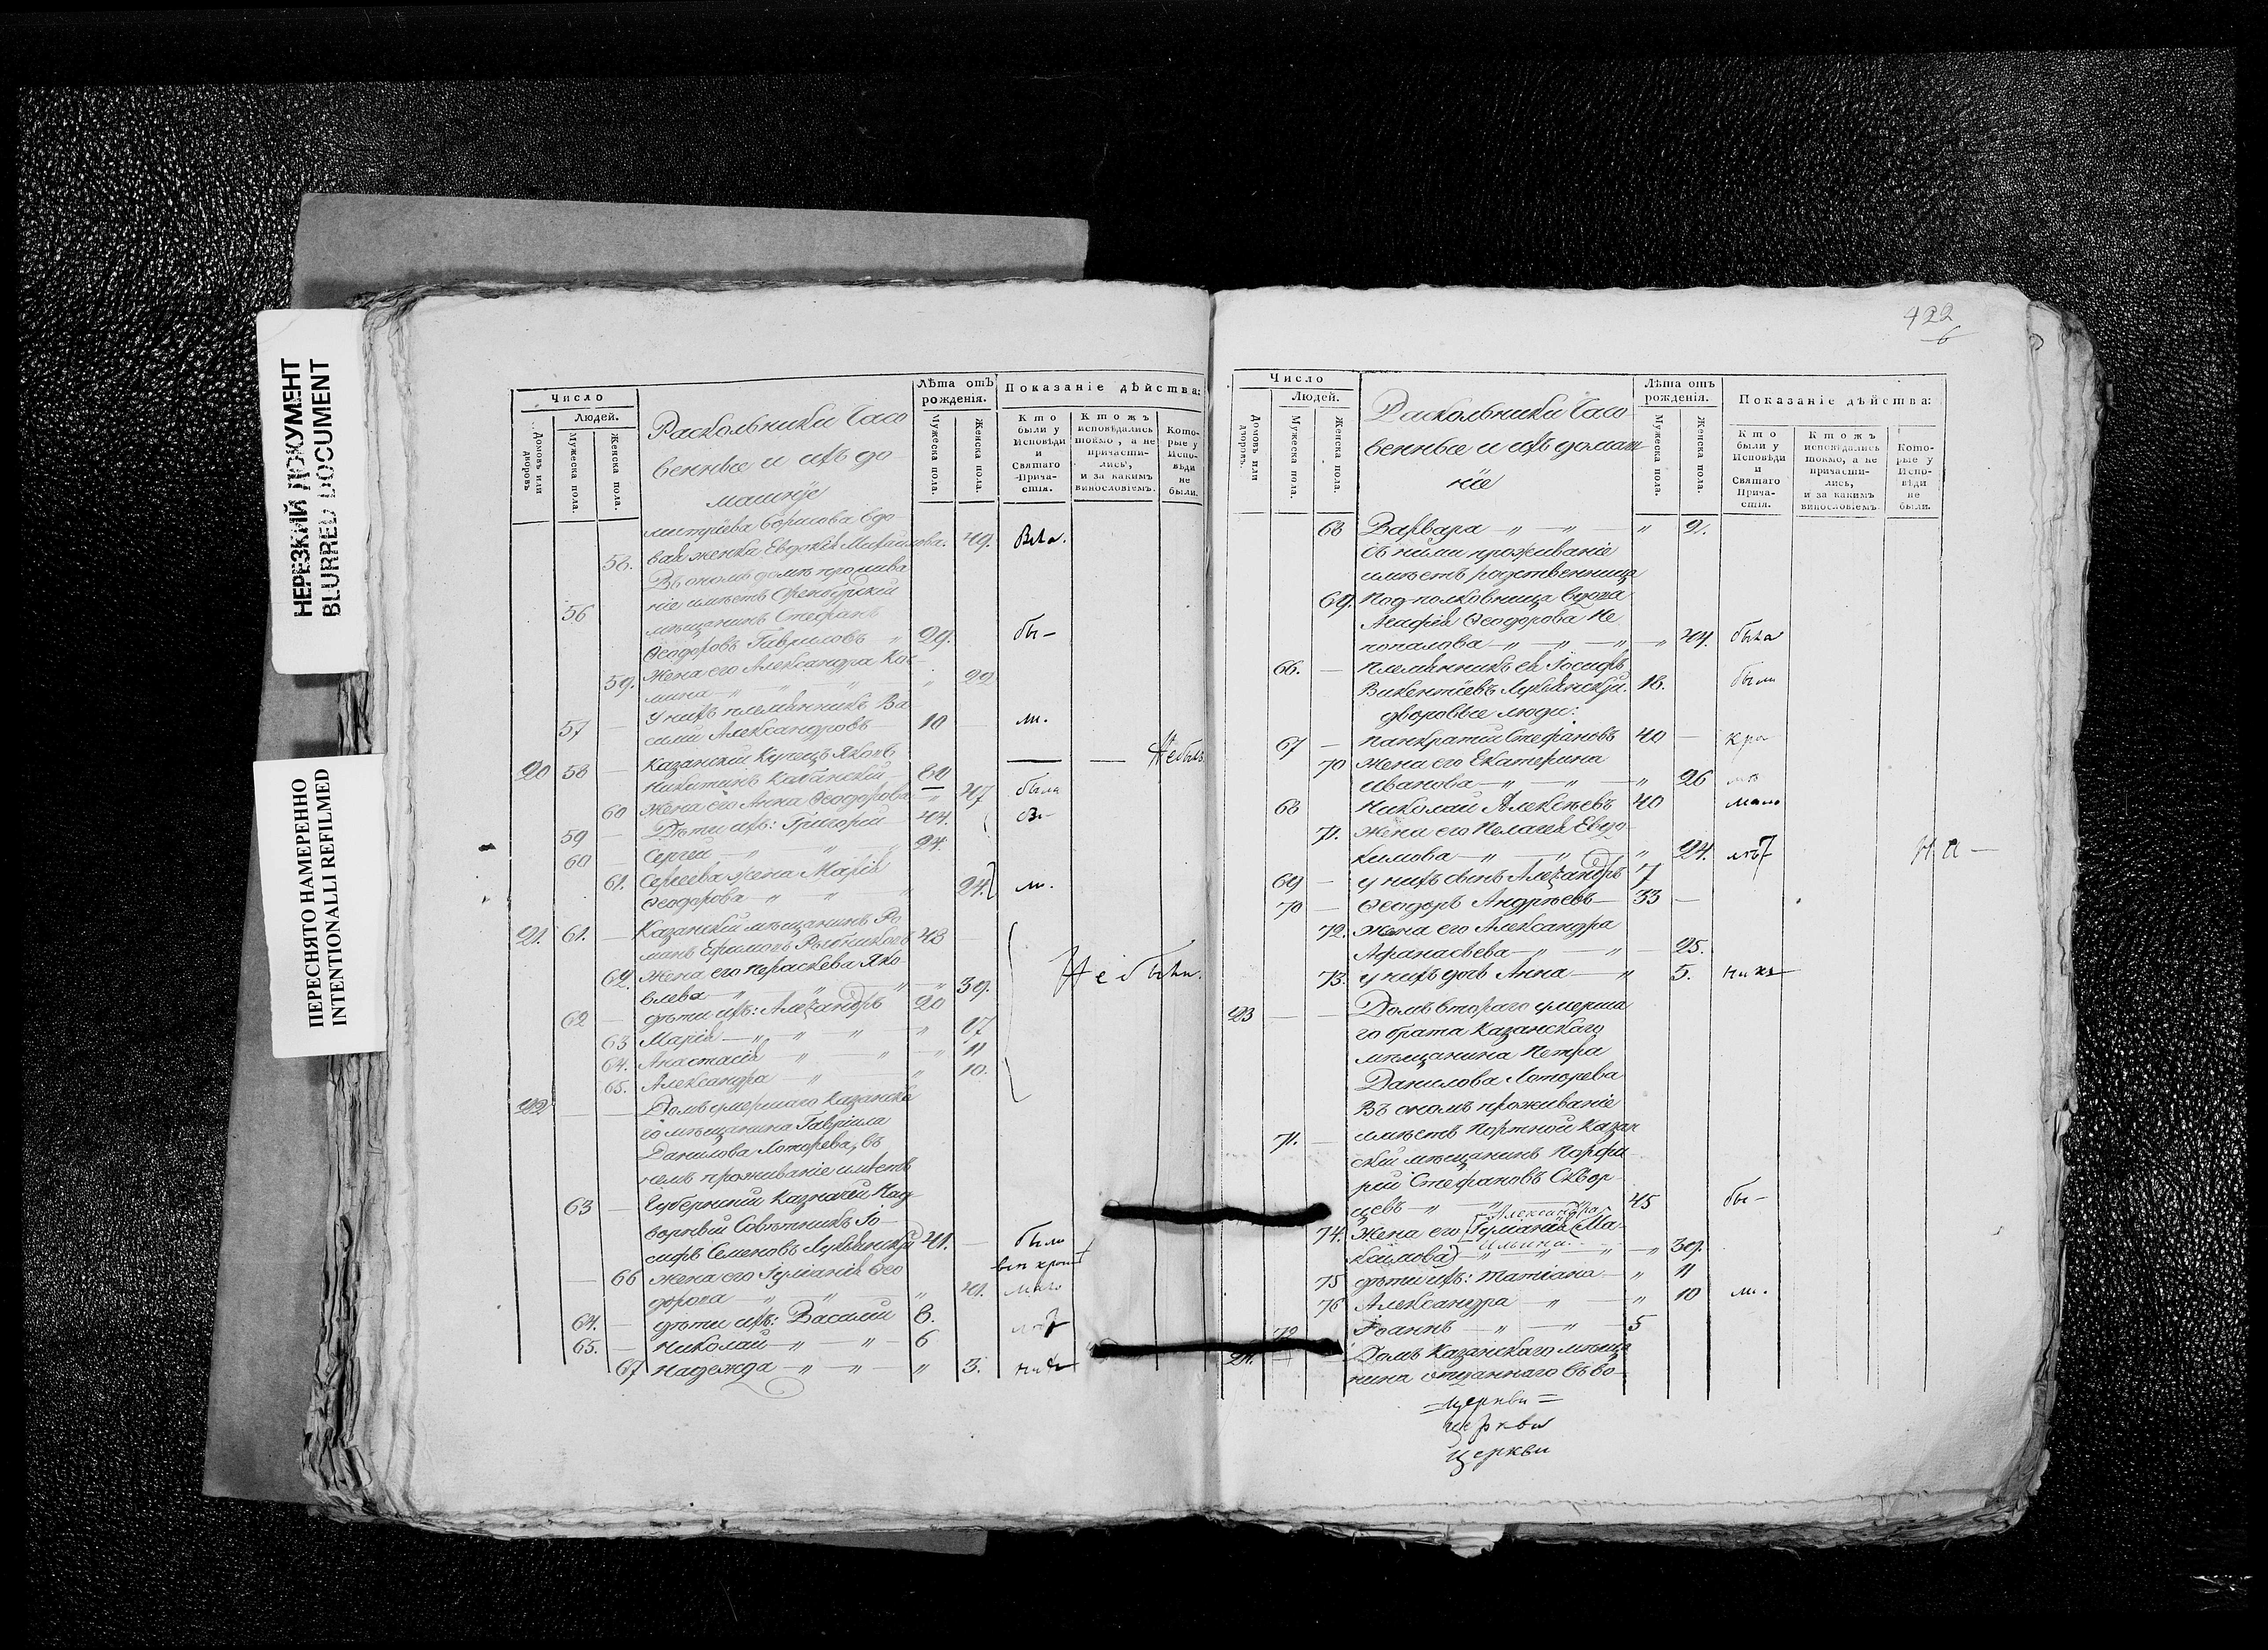 НЕРЕЗКИЙ ДОКУМЕНТ
BLURRED DOCUMENT
ПЕРЕСНЯТО НАМЕРЕННО
INTENTIONALLI REFILMED
Число
Людей.
Домовъ или дворовъ
Мужеска пола.
Женска пола.
Раскольники Часо
венные и ихъ до
машнїе
Лѣта отъ рожденія.
Мужеска пола.
Женска пола.
Показаніе дѣйства:
Кто были у Исповѣди и Святаго Прича-стія.
Ктожъ исповѣдались токмо, а не причасти-лись, и за какимъ винословіемъ.
Кото-рые у Испо-вѣди не были.
митрїева Борисова вдо
58. вая женка Евдокія Михайлова. 49.
Въ ономъ домѣ прожива
ніе имѣетъ
56 мѣщанинъ Стефанъ
Ѳеодоровъ Гавриловъ 29. бы-
59. Жена его Александра Кос-
мина 22
У нихъ племянникъ Ва
57 силій Александровъ 10 ли.
Казанскій Купецъ Яковъ
20 58 Никитинъ
60 Жена его Анна Ѳеодорова 47 была
59 Дѣти ихъ: Григорій 44.
60 Сергей 24.
61. Сергеева жена Марія
Ѳеодорова 24. ли.
Казанскій мѣщанинъ Ро
21. 61. манъ Ефимовъ 43
62. Жена его Параскева Яко
влева 39. Не были.
62 дѣти ихъ: Алеѯандръ 20
63 Марія 17
64. Анастасія 11
65. Александра 10.
22 Домъ умершаго Казанска
го мѣщанина Гавріила
Данилова Лоторева, въ
немъ проживаніе имѣетъ
63 Губернскій Казначей Над-
ворный Совѣтникъ Іо-
сифъ Семеновъ Лукьянскій 41. были
66 Жена его Іуліанія Ѳео
дорова 41.
64. дѣти ихъ: Василій 8.
65. Николай 6
67 Надежда 3.
422
6
Число
Людей.
Домовъ или дворовъ.
Мужеска пола.
Женска пола.
Раскольники Часо
венные и ихъ домаш
нїе
Лѣта отъ рожденія.
Мужеска пола.
Женска пола.
Показаніе дѣйства:
Кто были у Исповѣди и Святаго Прича-стія.
Ктожъ исповѣдались токмо, а не причасти-лись, и за какимъ винословіемъ.
Кото-рые у Испо-вѣди не были.
68 Варвара 2.
съ ними проживаніе
имѣетъ родственница
69. Под-полковница вдова
Агафія Ѳеодорова Не
попалова 44. была
66. Племянникъ ея Іосифъ
Викентіевъ Лукьянскій. 18. были
дворовые люди:
67 Панкратій Стефановъ 40
70 Жена его Екатерина
Иванова 26
68 Николай Алексѣевъ 40 мало
71. Жена его Пелагея Евдо-
кимова 24. лѣт
69 у нихъ сынъ Алеѯандръ 7
70 Ѳеодоръ Андреевъ 33
72. Жена его Александра
Афанасьева 25.
73. у нихъ дочь Анна 5.
23 Домъ втораго умерша
го брата Казанскаго
мѣщанина Петра
Данилова Лоторева
Въ ономъ проживаніе
71. имѣетъ Портной Казан
скій мѣщанинъ Порфи
рій Стефановъ Сквор-
цевъ 45 бы-
Александра
74. Жена его Іуліанія (Ма-
Ильина.
каімова) 39.
75 дѣти ихъ: Татіана 11
76 Александра 10 ли.
72 Іоаннъ 5
24. Домъ Казанскаго мѣща
нина отданнаго въ во-
Церкви
Церкви
Церкви